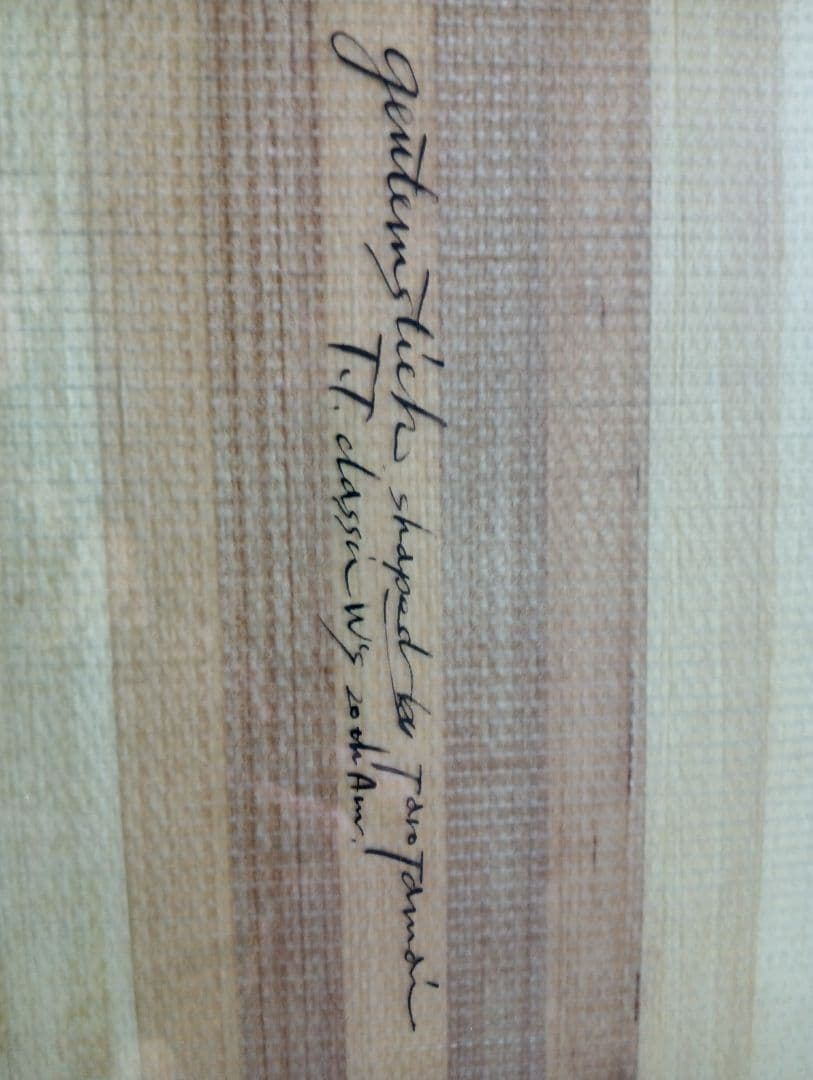 gentemstick shaped by Taro Tamai
T.T. classic W's 20th Anv.